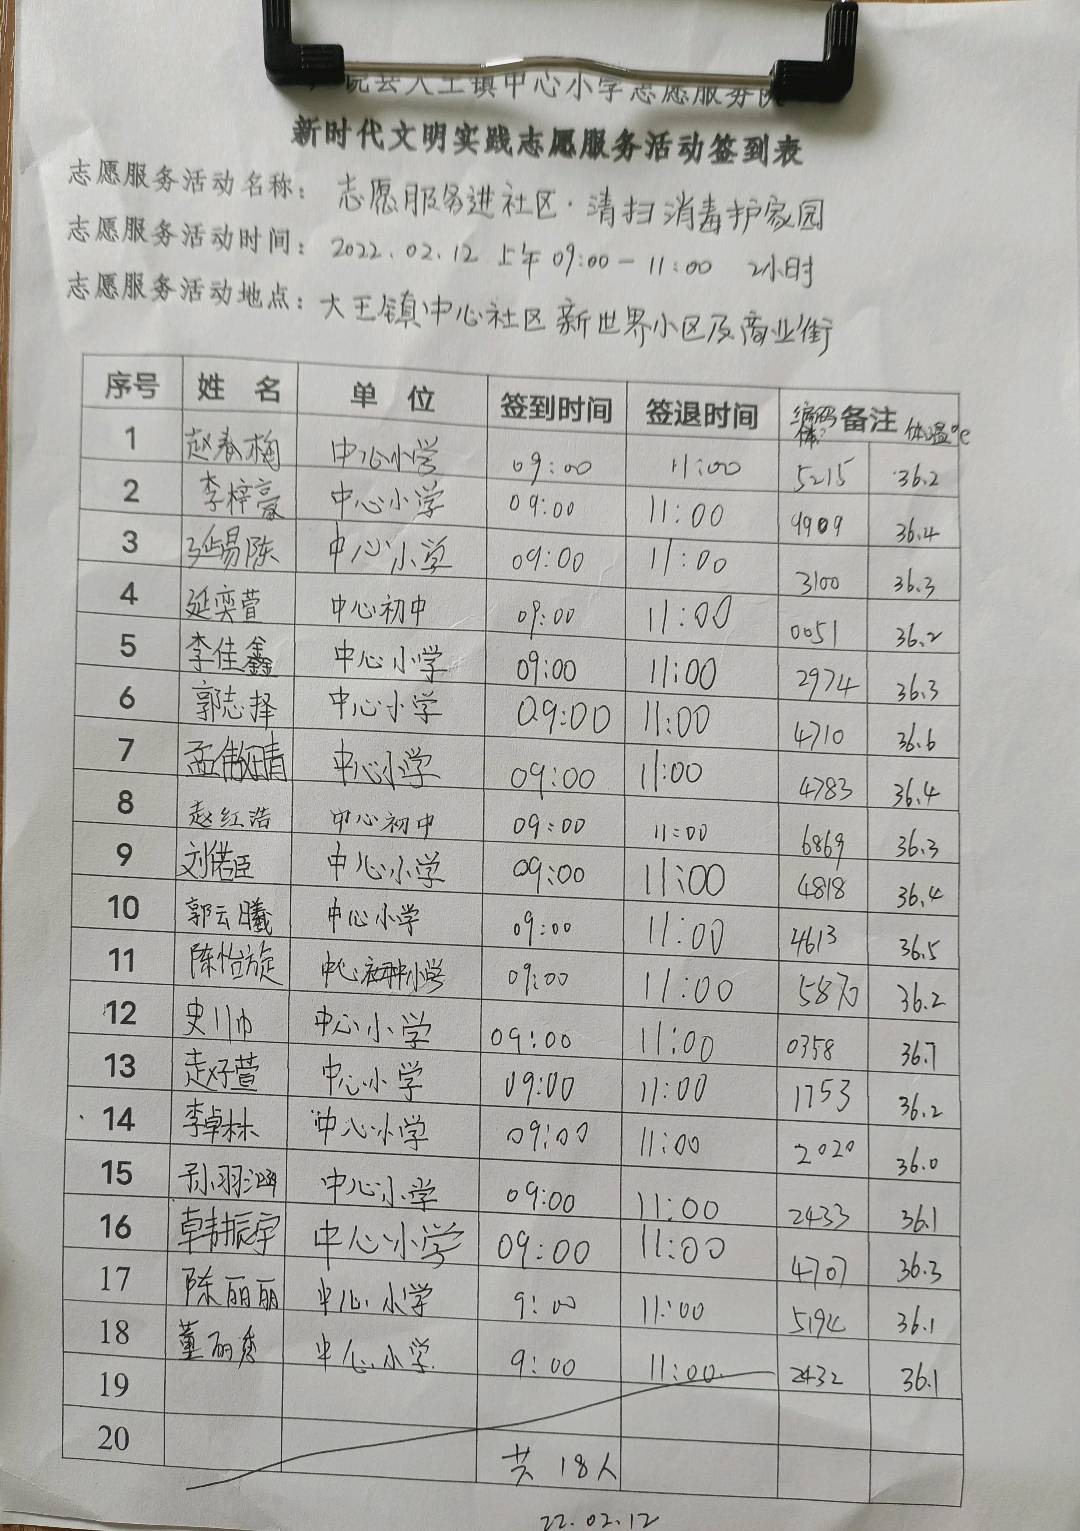 大王镇中心小学志愿服务队
新时代文明实践志愿服务活动签到表
志愿服务活动名称: 志愿服务进社区·清扫消毒护家园
志愿服务活动时间: 2022.02.12 上午09:00-11:00 2小时
志愿服务活动地点: 大王镇中心社区新世界小区及商业街
序号 姓 名 单 位 签到时间 签退时间 编码 备注 体温℃
1 赵春梅 中心小学 09:00 11:00 5215 36.2
2 李梓豪 中心小学 09:00 11:00 9909 36.4
3 延易陈 中心小学 09:00 11:00 3100 36.3
4 延奕萱 中心初中 09:00 11:00 0051 36.2
5 李佳鑫 中心小学 09:00 11:00 2974 36.3
6 郭志择 中心小学 09:00 11:00 4710 36.6
7 孟 中心小学 09:00 11:00 4783 36.4
8 赵红浩 中心初中 09:00 11:00 6869 36.3
9 刘偌臣 中心小学 09:00 11:00 4818 36.4
10 郭云曦 中心小学 09:00 11:00 4613 36.5
11 陈怡旋 中心小学 09:00 11:00 5870 36.2
12 史 中心小学 09:00 11:00 0358 36.7
13 赵子萱 中心小学 09:00 11:00 1753 36.2
14 李卓林 中心小学 09:00 11:00 2020 36.0
15 孙羽涵 中心小学 09:00 11:00 2433 36.1
16 韩振宇 中心小学 09:00 11:00 4707 36.3
17 陈丽丽 中心小学 9:00 11:00 5194 36.1
18 董丽秀 中心小学 9:00 11:00 2432 36.1
19
20 共18人
22.02.12